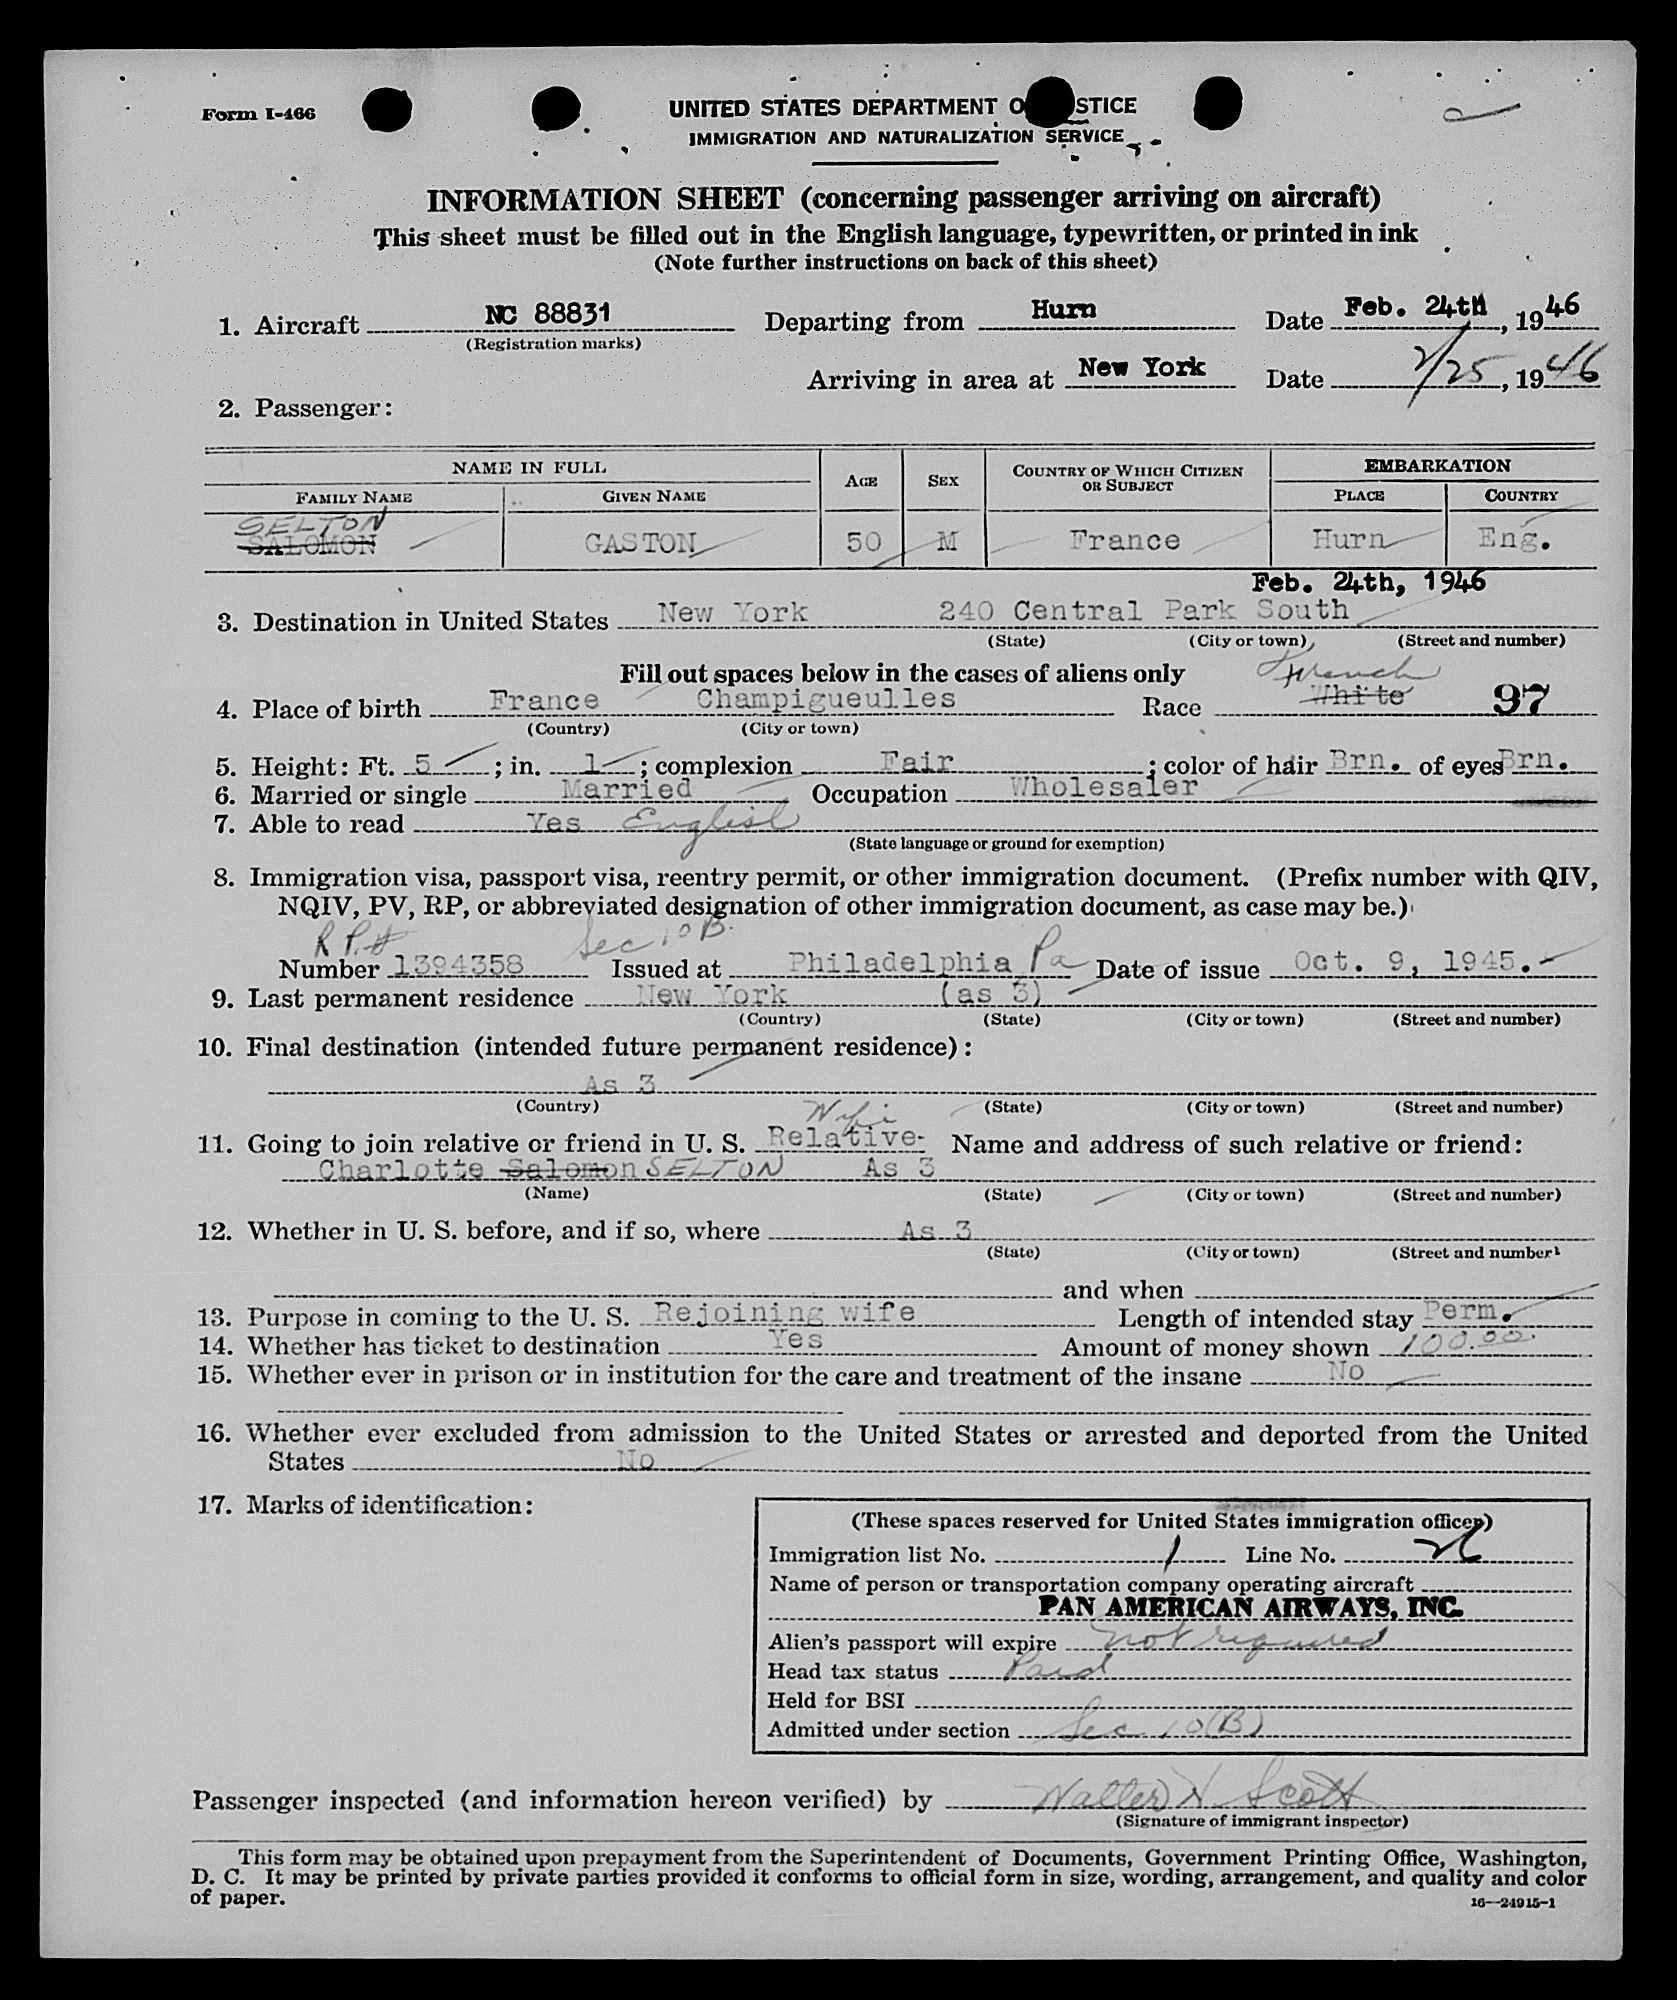 Form I-466
UNITED STATES DEPARTMENT O STICE
IMMIGRATION AND NATURALIZATION SERVICE
INFORMATION SHEET (concerning passenger arriving on aircraft)
This sheet must be filled out in the English language, typewritten, or printed in ink
(Note further instructions on back of this sheet)
1. Aircraft NC 88831 Departing from Hurn Date Feb. 24th, 1946
(Registration marks)
Arriving in area at New York Date 2/25, 1946
2. Passenger:
NAME IN FULL AGE SEX COUNTRY OF WHICH CITIZEN OR SUBJECT EMBARKATION
FAMILY NAME GIVEN NAME PLACE COUNTRY
SELTON
SALOMON GASTON 50 M France Hurn Eng.
Feb. 24th, 1946
3. Destination in United States New York 240 Central Park South
(State) (City or town) (Street and number)
Fill out spaces below in the cases of aliens only French
4. Place of birth France Champigueulles Race White 97
(Country) (City or town)
5. Height: Ft. 5; in. 1; complexion Fair; color of hair Brn. of eyes Brn.
6. Married or single Married Occupation Wholesaler
7. Able to read Yes English
(State language or ground for exemption)
8. Immigration visa, passport visa, reentry permit, or other immigration document. (Prefix number with QIV,
NQIV, PV, RP, or abbreviated designation of other immigration document, as case may be.)
R P.# Sec 10 B.
Number 1394358 Issued at Philadelphia Pa Date of issue Oct. 9, 1945.
9. Last permanent residence New York (as 3)
(Country) (State) (City or town) (Street and number)
10. Final destination (intended future permanent residence):
As 3
(Country) (State) (City or town) (Street and number)
Wife
11. Going to join relative or friend in U. S. Relative- Name and address of such relative or friend:
Charlotte Salomon SELTON As 3
(Name) (State) (City or town) (Street and number)
12. Whether in U. S. before, and if so, where As 3
(State) (City or town) (Street and number)
and when
13. Purpose in coming to the U. S. Rejoining wife Length of intended stay Perm.
14. Whether has ticket to destination Yes Amount of money shown 100.00.
15. Whether ever in prison or in institution for the care and treatment of the insane No
16. Whether ever excluded from admission to the United States or arrested and deported from the United
States No
17. Marks of identification:
(These spaces reserved for United States immigration officer)
Immigration list No. 1 Line No.
Name of person or transportation company operating aircraft
PAN AMERICAN AIRWAYS, INC.
Alien's passport will expire not required
Head tax status Paid
Held for BSI
Admitted under section Sec 10(B)
Passenger inspected (and information hereon verified) by Walter N. Scott
(Signature of immigrant inspector)
This form may be obtained upon prepayment from the Superintendent of Documents, Government Printing Office, Washington,
D. C. It may be printed by private parties provided it conforms to official form in size, wording, arrangement, and quality and color
of paper.
16—24915-1